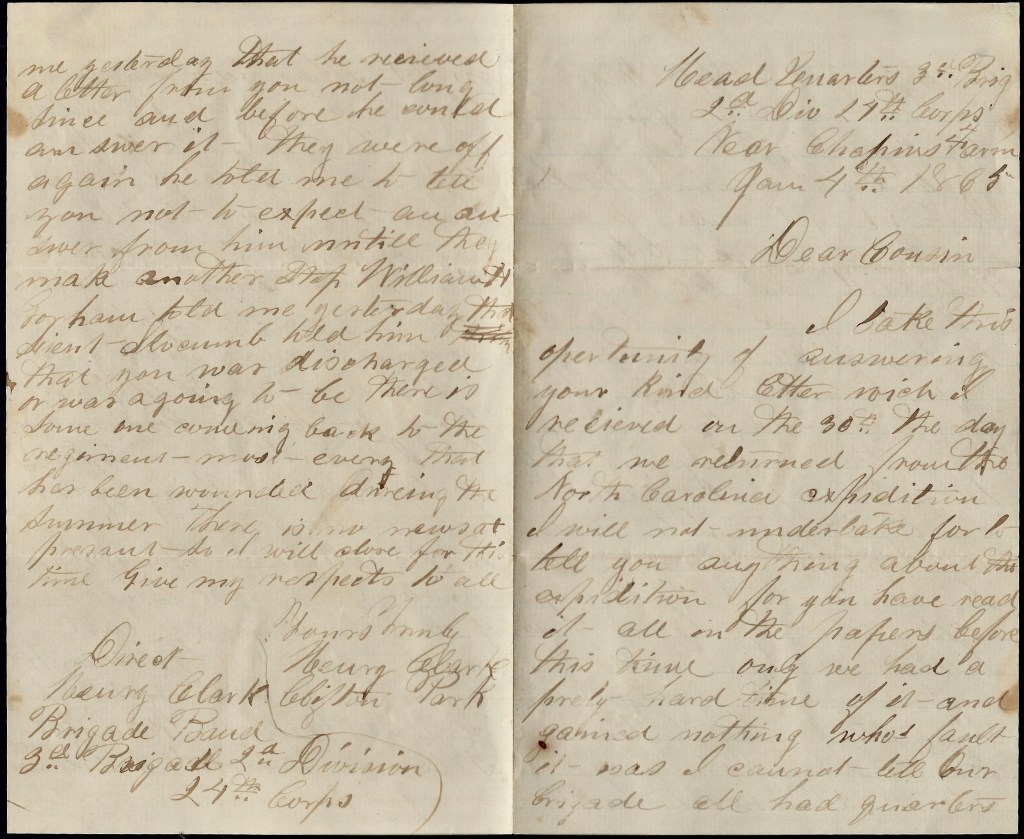 Head Quarters 3d. Brig
2d. Div 24th. Corps
Near Chapins Farm
Jan 4th. 1865
Dear Cousin
I take this
opertunity of answering
your kind letter wich I
recieved on the 30th. the day
that we returned from the
North Carolina expidition
I will not undertake for to
tell you anything about the
expidition for you have read
it all in the papers before
this time ony we had a
prety hard time of it and
gained nothing whos fault
it was I cannot tell Our
brigade all had quarters
me yesterday that he recieved
a letter from you not long
since and before he could
answer it they were off
again he told me to tell
you not to expect an an
swer from him untill they
mak another stop William H
Gorham told me yesterday that
Lieut Slocumb told him
that you was discharged
or was agoing to be there is
some one coming back to the
regiment most every that
has been wounded dureing the
summer There is no news at
presant so I will close for this
time Give my respects to all
Yours Truly
Henry Clark
Clifton Park
Direct
Henry Clark
Brigade Band
3d. Brigade 2d Division
24th Corps